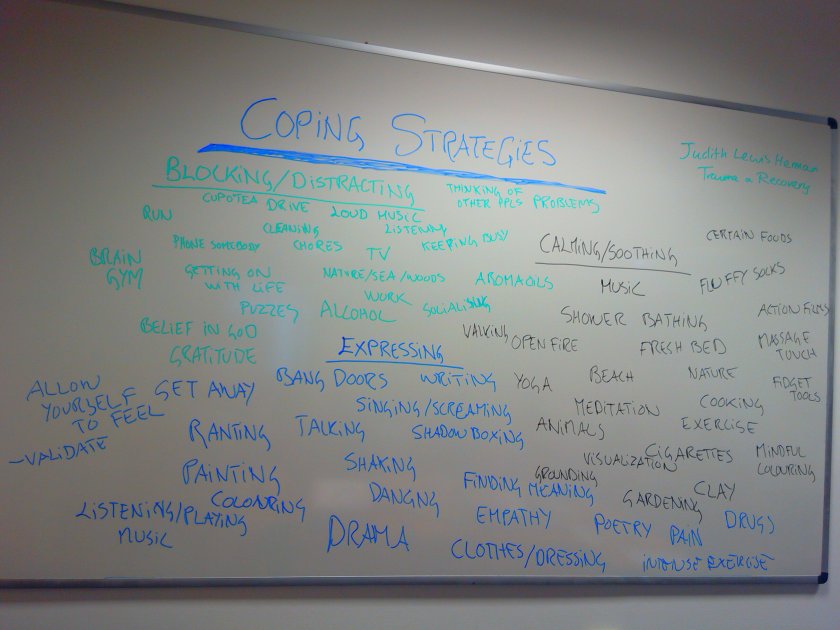 COPING STRATEGIES
Judith Lewis Herman
Trauma a Recovery
BLOCKING/DISTRACTING
THINKING OF
OTHER PPLS PROBLEMS
CUPO'TEA DRIVE LOUD MUSIC
RUN
CLEANING LISTENING
PHONE SOMEBODY CHORES TV KEEPING BUSY
BRAIN
GYM
GETTING ON
WITH LIFE
NATURE/SEA/WOODS AROMAOILS
WORK
PUZZES ALCOHOL SOCIALISING
BELIEF IN GOD
GRATITUDE
CALMING/SOOTHING
CERTAIN FOODS
MUSIC FLUFFY SOCKS
SHOWER BATHING ACTION FILMS
WALKING OPEN FIRE FRESH BED MASSAGE
TOUCH
YOGA BEACH NATURE FIDGET
TOOLS
MEDITATION COOKING
ANIMALS EXERCISE
VISUALIZATION CIGARETTES MINDFUL
COLOURING
GROUNDING GARDENING CLAY
EXPRESSING
ALLOW
YOURSELF
TO FEEL
-VALIDATE
GET AWAY BANG DOORS WRITING
SINGING/SCREAMING
RANTING TALKING SHADOW BOXING
PAINTING SHAKING
COLOURING DANCING FINDING MEANING
LISTENING/PLAYING
MUSIC
DRAMA EMPATHY POETRY PAIN DRUGS
CLOTHES/DRESSING INTENSE EXERCISE